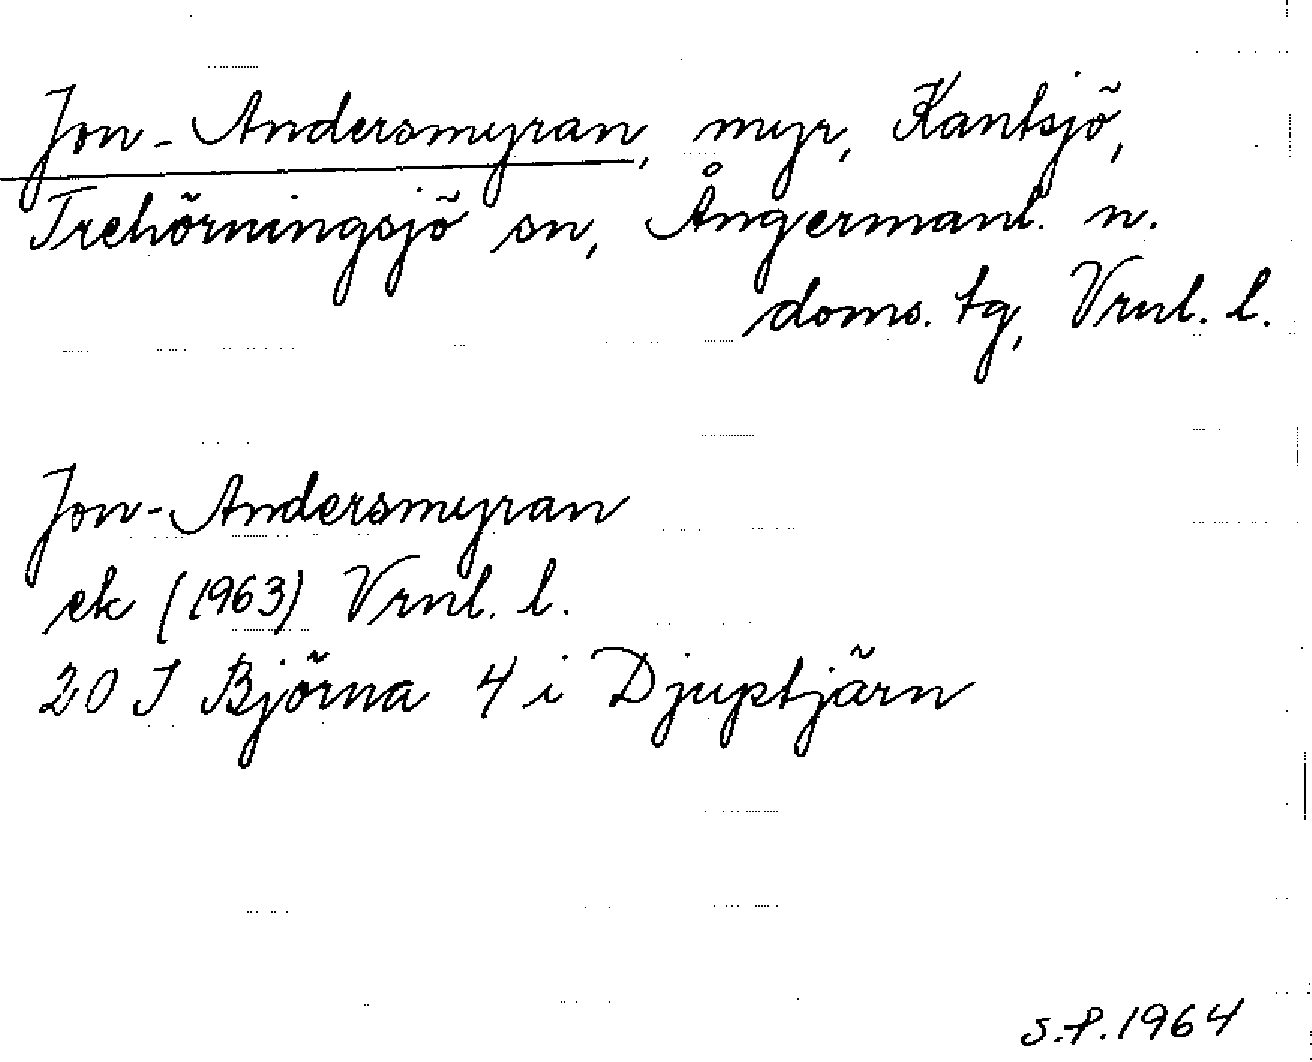 Jon-Andersmyran, myr, Kantsjö,
Trehörningsjö sn, Ångermanl. n.
doms. tg, Vrnl. l.
Jon-Andersmyran
ek (1963) Vrnl. l.
20 J Björna 4 i Djuptjärn
S.P. 1964